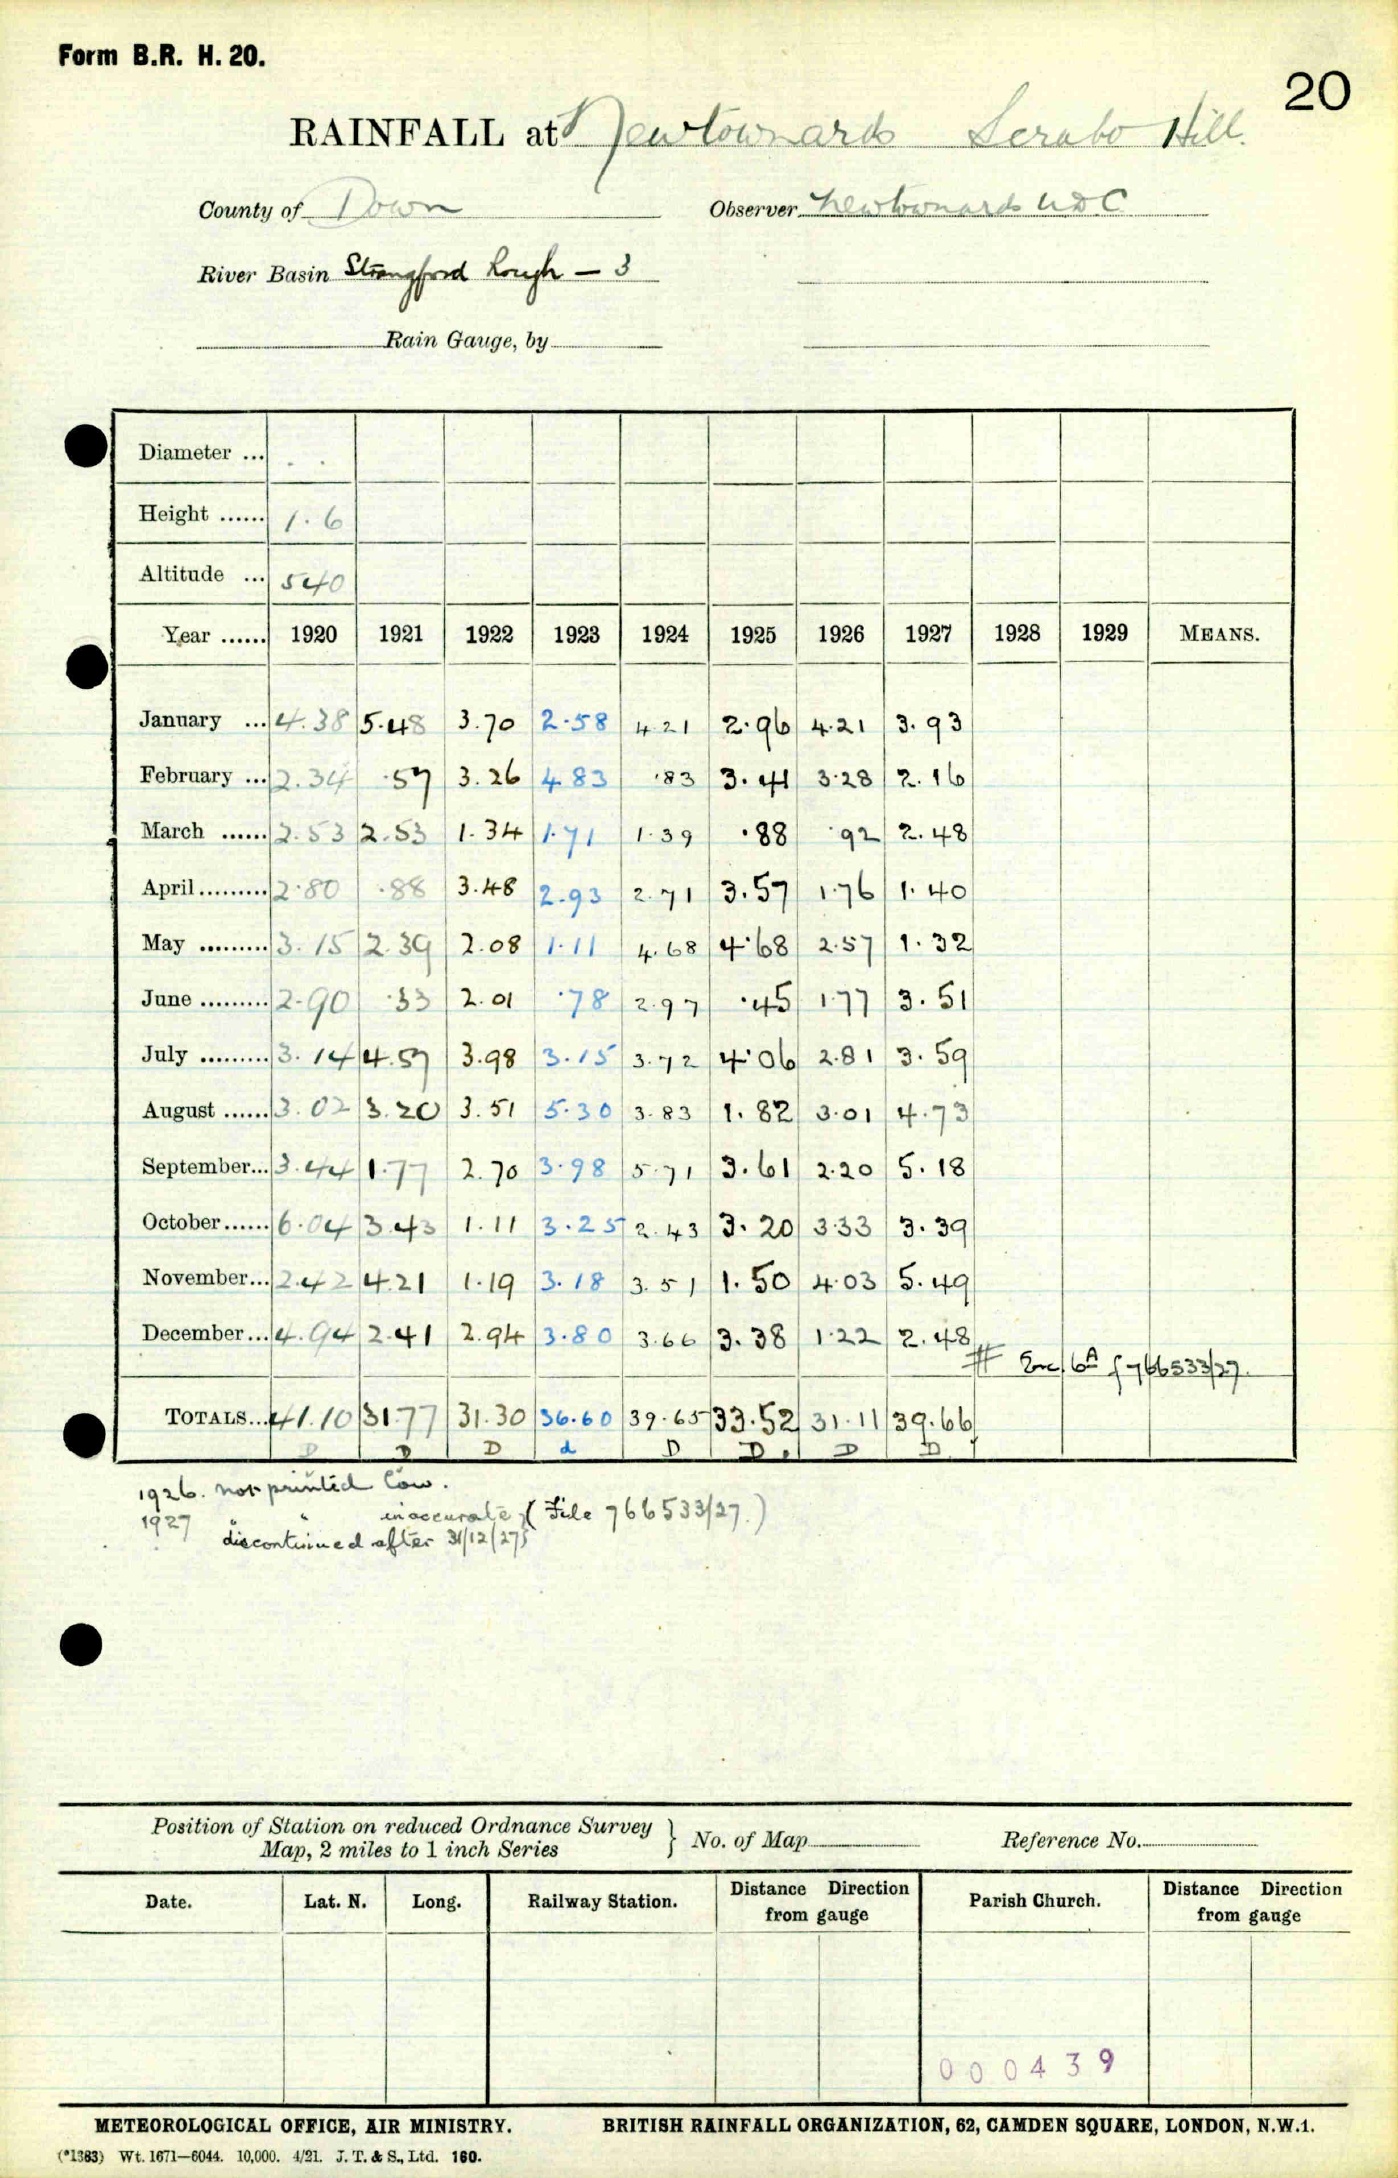 Form B.R. H. 20.
20
RAINFALL at Newtownards Scrabo Hill.
County of Down Observer Newtownards U D C
River Basin Strangford Lough — 3
Rain Gauge, by
Diameter ...
Height ...... 1.6
Altitude ... 540
Year ...... 1920 1921 1922 1923 1924 1925 1926 1927 1928 1929 MEANS.
January ... 4.38 5.48 3.70 2.58 4.21 2.96 4.21 3.93
February ... 2.34 .57 3.26 4.83 .83 3.41 3.28 2.16
March ...... 2.53 2.53 1.34 1.71 1.39 .88 .92 2.48
April ......... 2.80 .88 3.48 2.93 2.71 3.57 1.76 1.40
May ......... 3.15 2.39 2.08 1.11 4.68 4.68 2.57 1.32
June ......... 2.90 .33 2.01 .78 2.97 .45 1.77 3.51
July ......... 3.14 4.57 3.98 3.15 3.72 4.06 2.81 3.59
August ...... 3.02 3.20 3.51 5.30 3.83 1.82 3.01 4.73
September... 3.44 1.77 2.70 3.98 5.71 3.61 2.20 5.18
October...... 6.04 3.43 1.11 3.25 2.43 3.20 3.33 3.39
November... 2.42 4.21 1.19 3.18 3.51 1.50 4.03 5.49
December... 4.94 2.41 2.94 3.80 3.66 3.38 1.22 2.48
# Enc. 6A f 766533/27.
TOTALS... 41.10 31.77 31.30 36.60 39.65 33.52 31.11 39.66
D D D d D D. D D
1926. not printed low.
1927 " " inaccurate } (File 766533/27.)
discontinued after 31/12/27}
Position of Station on reduced Ordnance Survey
Map, 2 miles to 1 inch Series } No. of Map Reference No.
Date. Lat. N. Long. Railway Station. Distance from gauge Direction Parish Church. Distance from gauge Direction
000439
METEOROLOGICAL OFFICE, AIR MINISTRY. BRITISH RAINFALL ORGANIZATION, 62, CAMDEN SQUARE, LONDON, N.W.1.
(*1383) Wt. 1671—6044. 10,000. 4/21. J. T. & S., Ltd. 160.